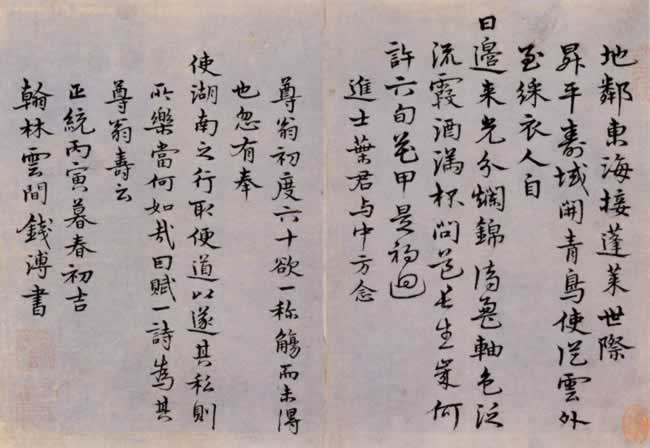 地鄰東海接蓬萊世際
昇平壽域開青鳥使從雲外
至綵衣人自
日邊来光分爛錦鸞軸色泛
流霞酒滿杯問道長生幾何
許六旬花甲是初迴
進士葉君与中方念
尊翁初度六十欲一称觴而未得
也忽有奉
使湖南之行取便道以遂其私則
所樂當何如哉因賦一詩為其
尊翁壽云
正統丙寅暮春初吉
翰林雲間錢溥書